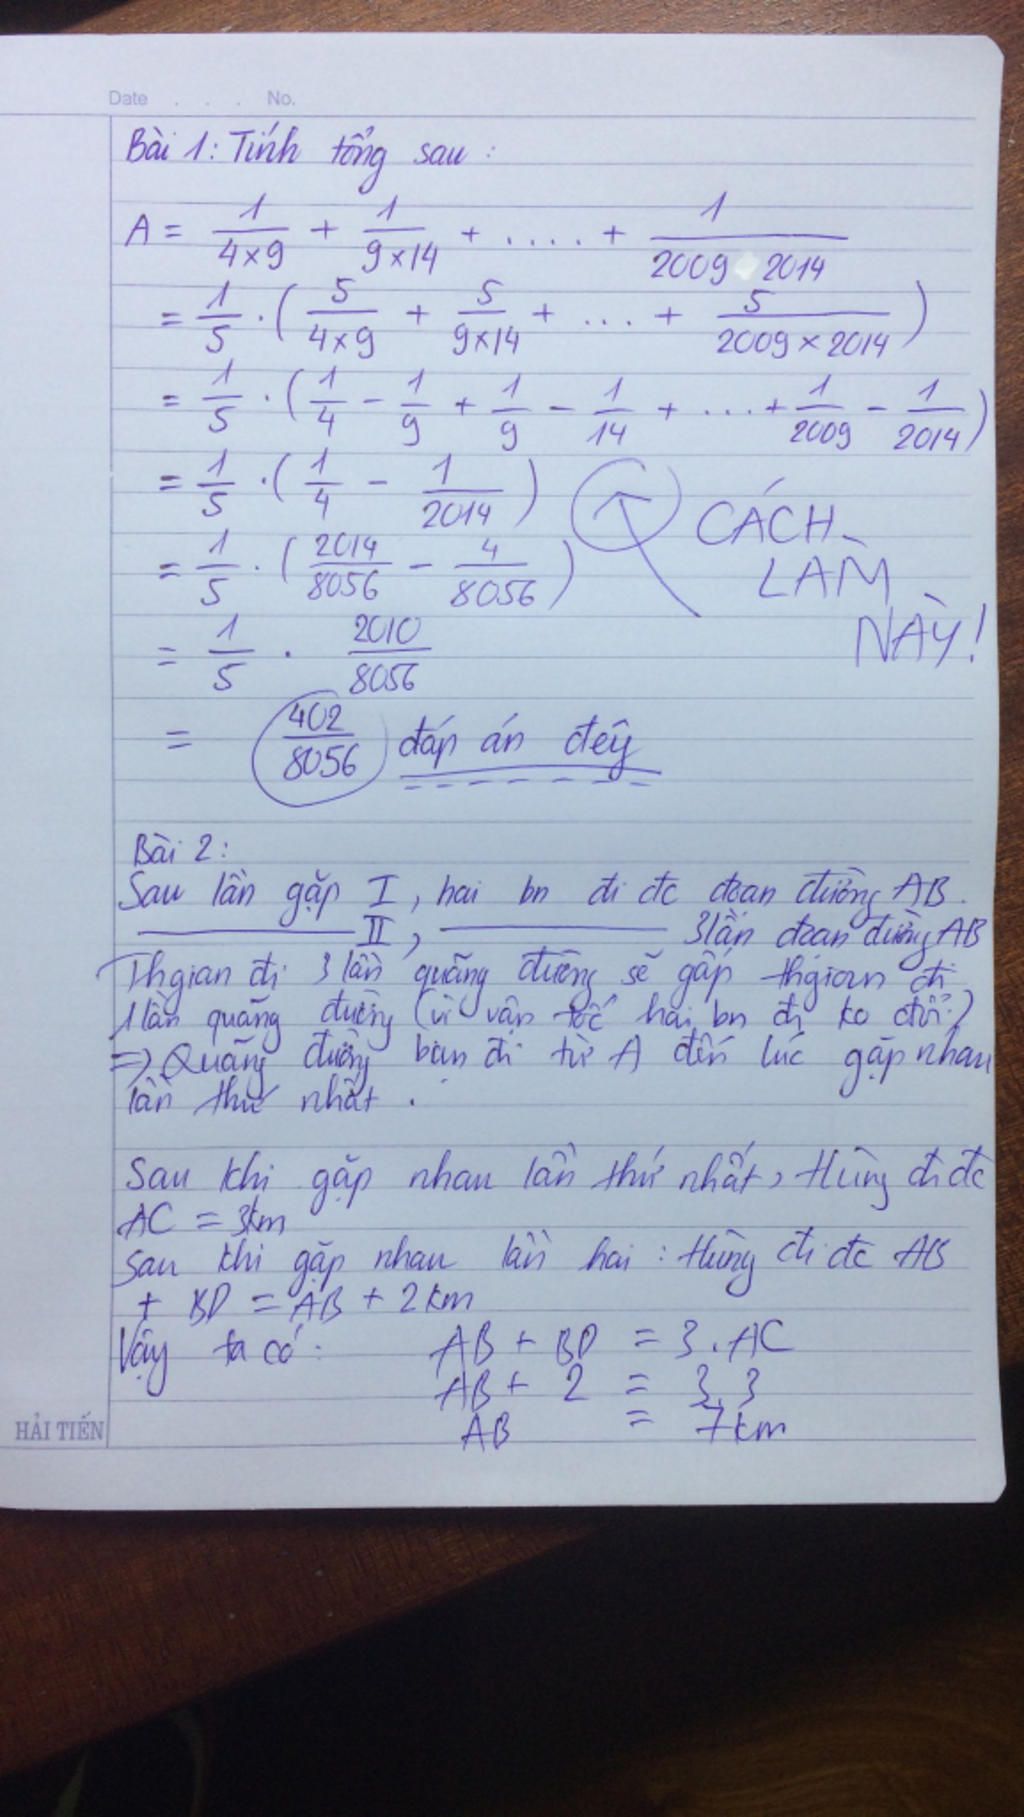 Date . . . No.
Bài 1: Tính tổng sau :
A = 1/(4×9) + 1/(9×14) + .... + 1/(2009 2014)
= 1/5 . ( 5/(4×9) + 5/(9×14) + ... + 5/(2009×2014) )
= 1/5 . ( 1/4 - 1/9 + 1/9 - 1/14 + ... + 1/2009 - 1/2014 )
= 1/5 . ( 1/4 - 1/2014 )
CÁCH
LÀM
NÀY!
= 1/5 . ( 2014/8056 - 4/8056 )
= 1/5 . 2010/8056
= 402/8056 đáp án đêy
Bài 2:
Sau lần gặp I, hai bn đi đc đoạn đường AB.
II, 3 lần đoạn đường AB
Thgian đi 3 lần quãng đường sẽ gấp thgian đi
1 lần quãng đường (vì vận tốc hai bn đi ko đổi)
=> Quãng đường bạn đi từ A đến lúc gặp nhau
lần thứ nhất .
Sau khi gặp nhau lần thứ nhất, Hùng đi đc
AC = 3km
Sau khi gặp nhau lần hai : Hùng đi đc AB
+ BD = AB + 2km
Vậy ta có: AB + BD = 3 . AC
AB + 2 = 3.3
AB = 7km
HẢI TIẾN